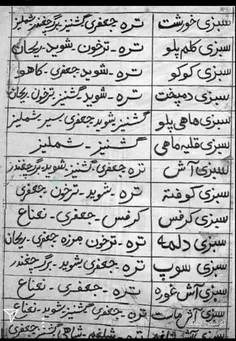 سبزی خورشت تره جعفری گشنیز برگ چغندر شملیز
سبزی کلم پلو تره - ترخون شوید - ریحان
سبزی کوکو تره - شوید - جعفری - کاهو
سبزی دمپخت تره - شوید - گشنیز ترخون ریحان
سبزی ماهی پلو گشنیز شوید جعفری سیر - شملیز
سبزی قلیه ماهی گشنیز - شملیز
سبزی آش تره جعفری گشنیز شوید برگ چغندر
سبزی کوفته تره - شوید - ترخون جعفری
سبزی کرفس کرفس - جعفری - نعناع
سبزی دلمه تره - ترخون مرزه جعفری - ریحان
سبزی سوپ تره جعفری شوید - برگ چغندر
سبزی آش غوره تره - جعفری - نعناع
سبزی آش ماست تره جعفری گشنیز شوید - نعناع